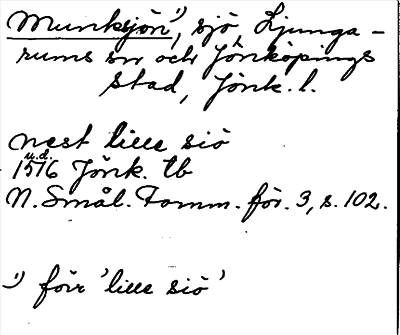 Munksjön¹⁾, sjö, Ljunga-
rums sn och Jönköpings
stad, Jönk. l.
nest lille siö
u.d.
1516 Jönk. tb
N. Smål. Fornm.för. 3, s. 102.
¹⁾ förr 'lille siö'